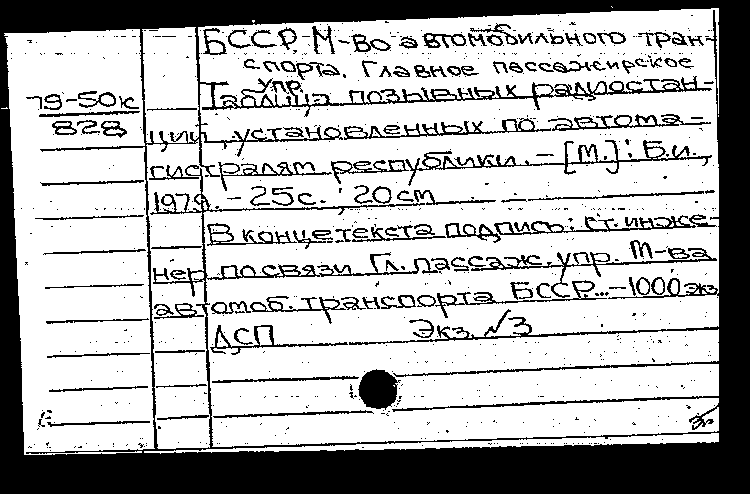 БССР. М-во автомобильного тран-
спорта. Главное пассажирское
упр.
79-50к
828
Таблица позывных радиостан-
ций, установленных по автома-
гистралям республики. - [М.]: Б.и.,
1979. - 25с. ; 20 cm
В конце текста подпись: ст. инже-
нер по связи Гл. пассаж. упр. М-ва
автомоб. транспорта БССР... - 1000 экз
ДСП Экз. №3